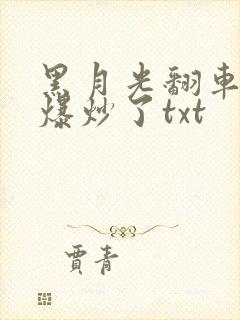 黑月光翻車
爆炒了txt
賈青